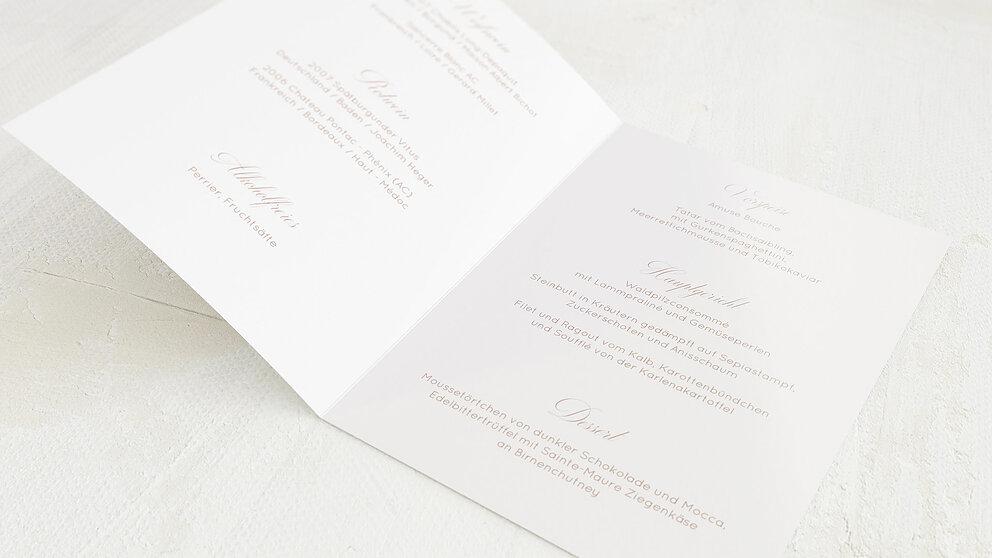 Weißwein
Long-Depaquit
/ Maison Albert Bichot
Sancerre Blanc AC
Frankreich / Loire / Gérard Millet
Rotwein
2007 Spätburgunder Vitus
Deutschland / Baden / Joachim Heger
2006 Chateau Pontac - Phénix (AC)
Frankreich / Bordeaux / Haut - Médoc
Alkoholfreies
Perrier, Fruchtsäfte
Vorspeise
Amuse Bouche
Tatar vom Bachsaibling,
mit Gurkenspaghettini,
Meerrettichmousse und Tobikokaviar
Hauptgericht
Waldpilzconsommé
mit Lammpraliné und Gemüseperlen
Steinbutt in Kräutern gedämpft auf Sepiastampf,
Zuckerschoten und Anisschaum
Filet und Ragout vom Kalb, Karottenbündchen
und Soufflé von der Karlenakartoffel
Dessert
Moussetörtchen von dunkler Schokolade und Mocca,
Edelbittertrüffel mit Sainte-Maure Ziegenkäse
an Birnenchutney